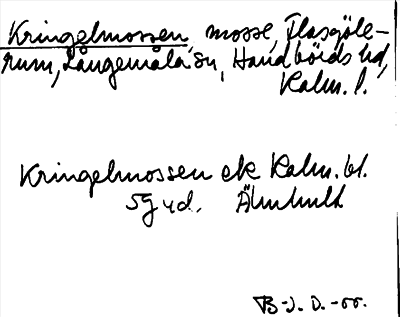 Kringelmossen, mosse, Flasgöle-
rum, Långemåla sn, Handbörds hd,
Kalm. l.
Kringelmossen ek Kalm. bl.
5g ud. Älmhult
B-J. D. -55.